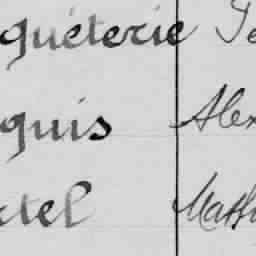 quéterie Je
quis Alex
ctel Math